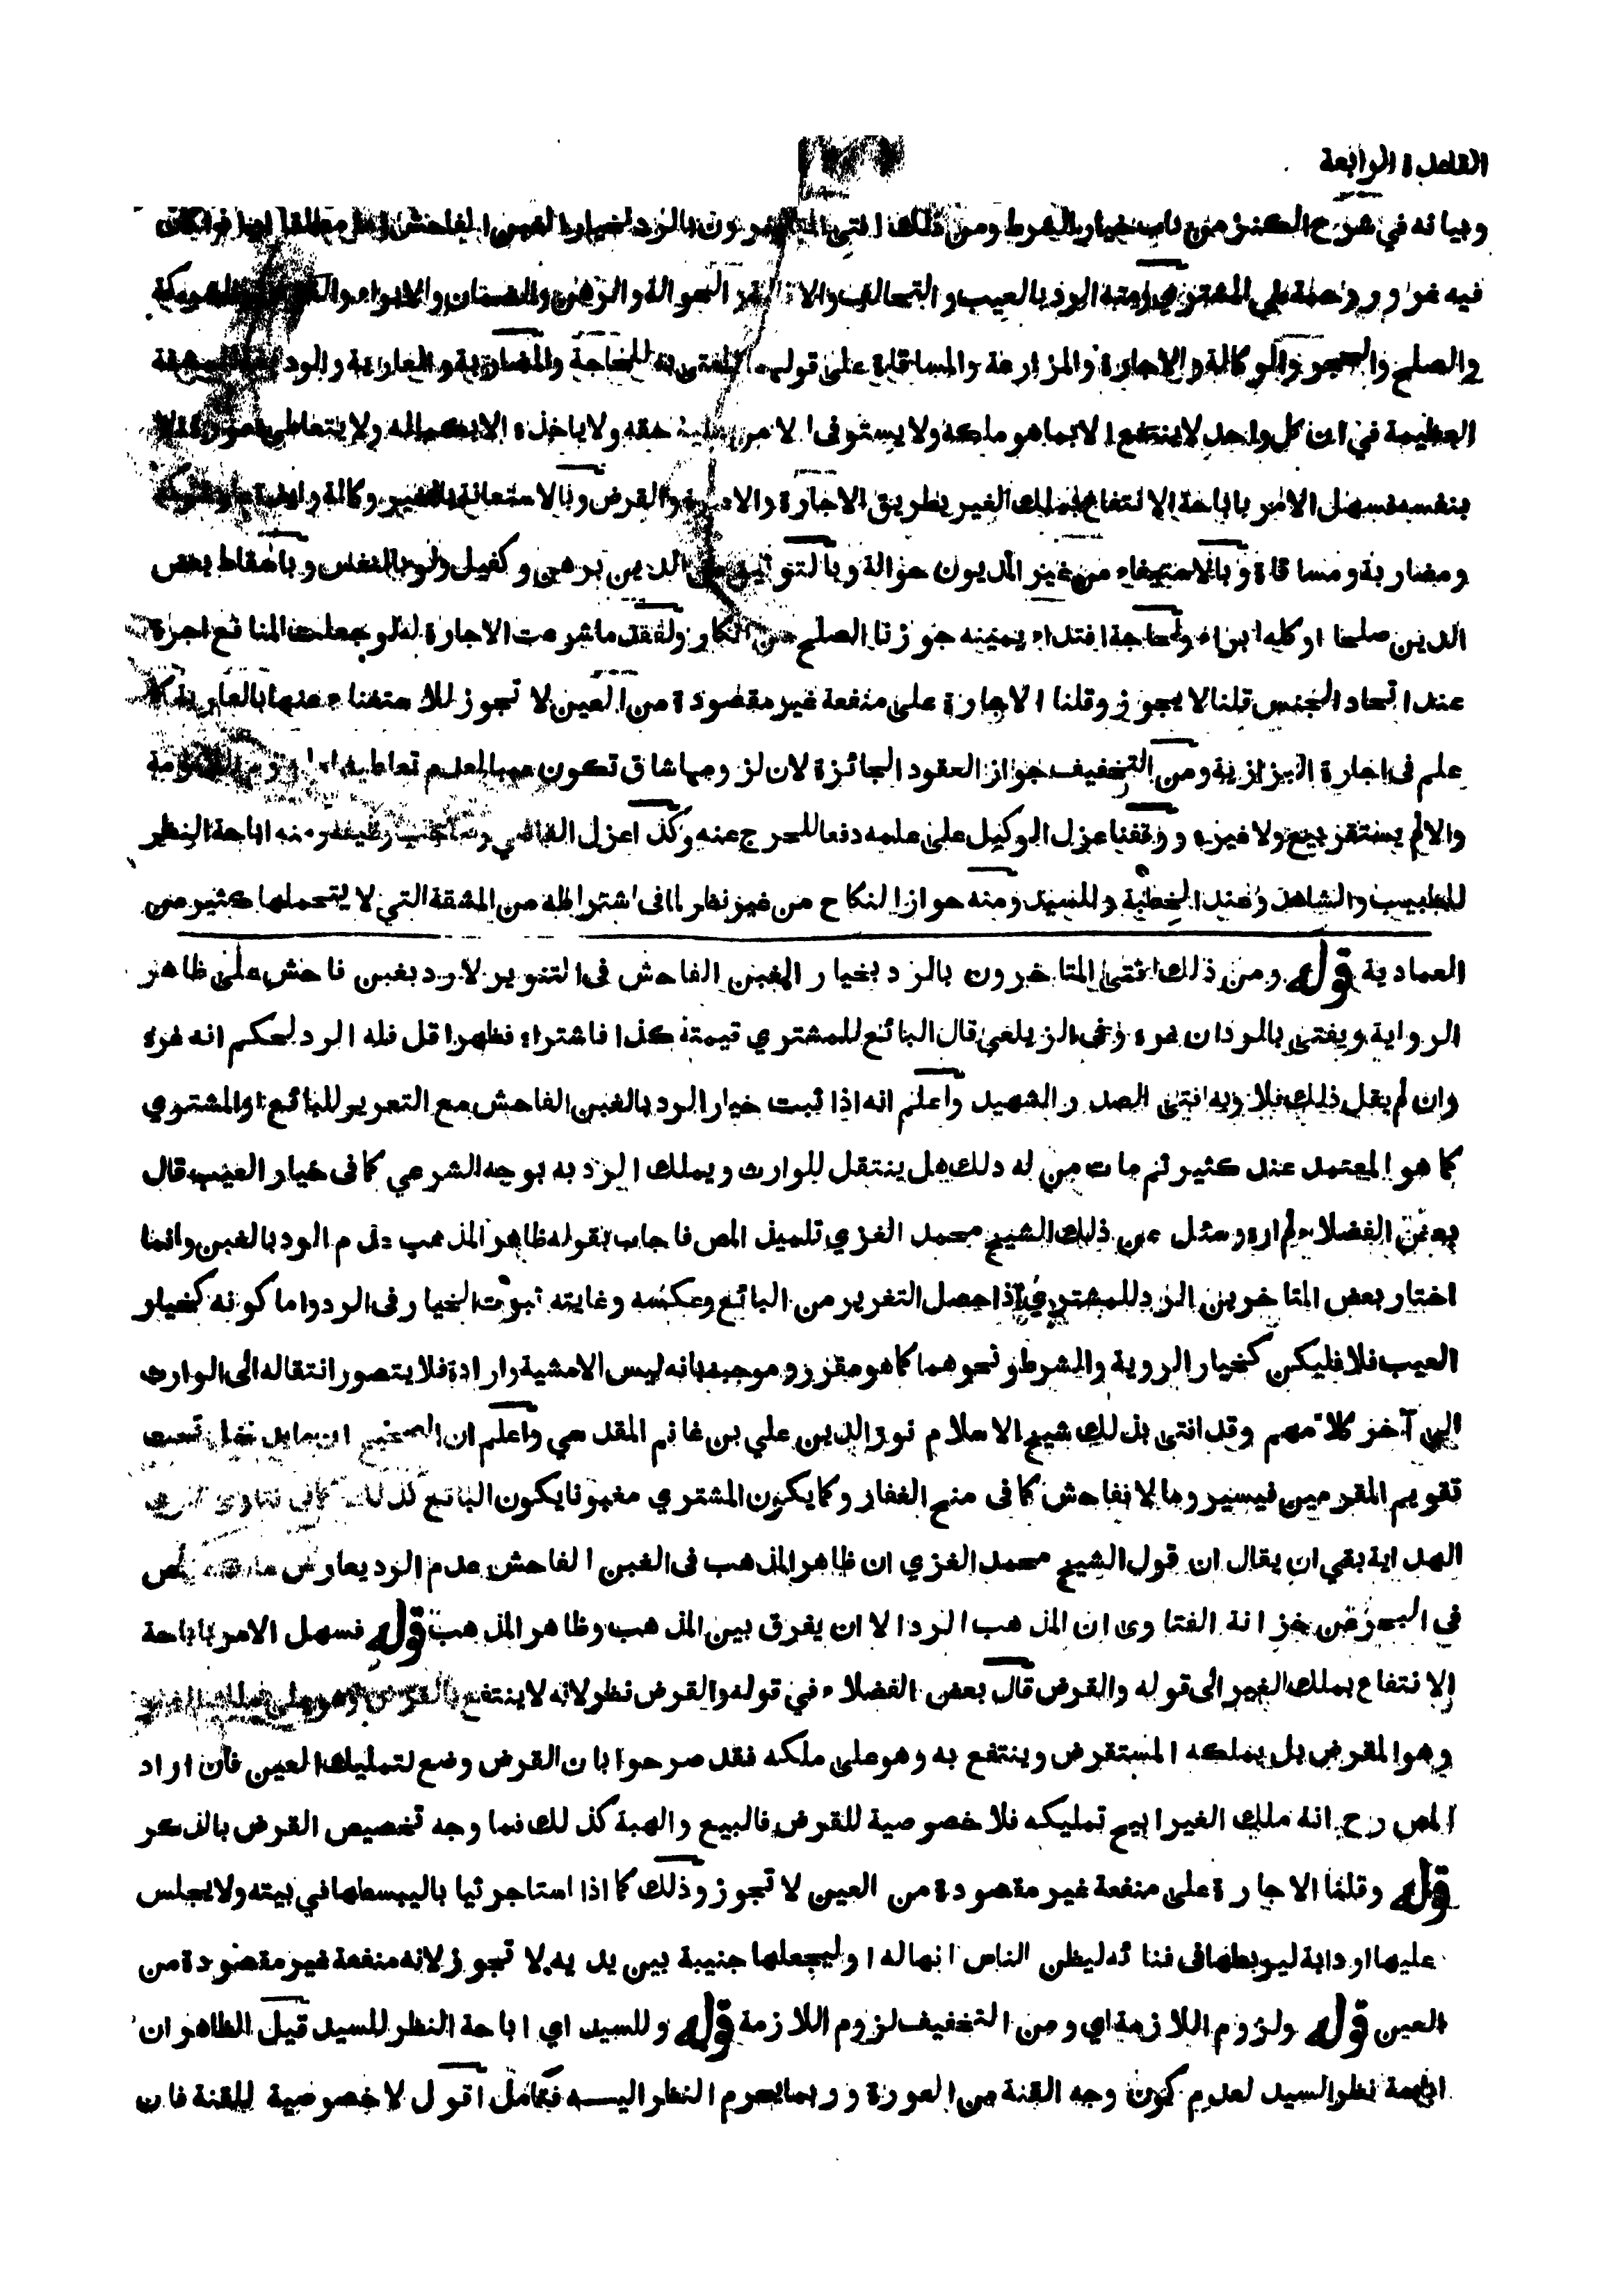 القاعدة الرابعة
وبيانه في شرح الكنز من باب خيار الشرط ومن ذلك افتى المتاخرون بالرد بخيار الغبن الفاحش اما مطلقا او اذا كان
فيه غرور رحمة على المشتري ومنه الرد بالعيب والتحالف والاقالة والحوالة والرهن والضمان والابراء والقرض والشركة
والصلح والحجر والوكالة والاجارة والمزارعة والمساقاة على قولهما المفتى به للحاجة والمضاربة والعارية والوديعة للمشقة
العظيمة في ان كل واحد لا ينتفع الا بما هو ملكه ولا يستوفى الا ممن عليه حقه ولا ياخذه الا بكماله ولا يتعاطى اموره الا
بنفسه فسهل الامر باباحة الانتفاع بملك الغير بطريق الاجارة والاعارة والقرض وبالاستعانة بالغير وكالة وايداعا وشركة
ومضاربة ومساقاة وبالاستيفاء من غير المديون حوالة وبالتوثيق على الدين برهن وكفيل ولو بالنفس وباسقاط بعض
الدين صلحا او كله ابراء ولحاجة افتداء يمينه جوزنا الصلح عن انكار ولفقد ما شرعت الاجارة له لو جعلت المنافع اجرة
عند اتحاد الجنس قلنا لا يجوز وقلنا الاجارة على منفعة غير مقصودة من العين لا تجوز للاستغناء عنها بالعارية كما
علم فى اجارة البزازية ومن التخفيف جواز العقود الجائزة لان لزومها شاق تكون سببا لعدم تعاطيها ولزوم اللازمة
والا لم يستقر بيع ولا غيره ووقفنا عزل الوكيل على علمه دفعا للحرج عنه وكذا عزل القاضي وصاحب وظيفة ومنه اباحة النظر
للطبيب والشاهد وعند الخطبة وللسيد ومنه جواز النكاح من غير نظر لما فى اشتراطه من المشقة التي لا يتحملها كثير من
العمادية قوله ومن ذلك افتى المتاخرون بالرد بخيار الغبن الفاحش فى التنوير لا رد بغبن فاحش على ظاهر
الرواية ويفتى بالرد ان غره وفى الزيلعي قال البائع للمشتري قيمته كذا فاشتراه فظهر اقل فله الرد لحكم انه غره
وان لم يقل ذلك فلا وبه افتى الصدر الشهيد واعلم انه اذا ثبت خيار الرد بالغبن الفاحش مع التغرير للبائع او المشتري
كما هو المعتمد عند كثير ثم مات من له ذلك هل ينتقل للوارث ويملك الرد به بوجه الشرعي كما فى خيار العيب قال
بعض الفضلاء لم اره وسئل عن ذلك الشيخ محمد الغزي تلميذ المص فاجاب بقوله ظاهر المذهب عدم الرد بالغبن وانما
اختار بعض المتاخرين الرد للمشتري اذا حصل التغرير من البائع وعكسه وغايته ثبوت الخيار فى الرد واما كونه كخيار
العيب فلا فليكن كخيار الروية والشرط ونحوهما كما هو مقرر وموجبه بانه ليس الا مشية وارادة فلا يتصور انتقاله الى الوارث
الى آخر كلامهم وقد افتى بذلك شيخ الاسلام نور الدين علي بن غانم المقدسي واعلم ان الصحيح ان ما يدخل تحت
تقويم المقومين فيسير وما لا ففاحش كما فى منح الغفار وكما يكون المشتري مغبونا يكون البائع كذلك كما فى فتاوى قارئ
الهداية بقي ان يقال ان قول الشيخ محمد الغزي ان ظاهر المذهب فى الغبن الفاحش عدم الرد يعارض ما نقله المص
في البحر عن خزانة الفتاوى ان المذهب الرد الا ان يفرق بين المذهب وظاهر المذهب قوله فسهل الامر باباحة
الانتفاع بملك الغير الى قوله والقرض قال بعض الفضلاء في قوله والقرض نظر لانه لا ينتفع بالقرض وهو على ملك الغير
وهو المقرض بل يملكه المستقرض وينتفع به وهو على ملكه فقد صرحوا بان القرض وضع لتمليك العين فان اراد
المص رح انه ملك الغير ابيح تمليكه فلا خصوصية للقرض فالبيع والهبة كذلك فما وجه تخصيص القرض بالذكر
قوله وقلنا الاجارة على منفعة غير مقصودة من العين لا تجوز وذلك كما اذا استاجر ثيابا ليبسطها في بيته ولا يجلس
عليها او دابة ليربطها فى فنائه ليظن الناس انها له او ليجعلها جنيبة بين يديه لا تجوز لانه منفعة غير مقصودة من
العين قوله ولزوم اللازمة اي ومن التخفيف لزوم اللازمة قوله وللسيد اي اباحة النظر للسيد قيل الظاهر ان
اباحة نظر السيد لعدم كون وجه القنة من العورة وربما يحرم النظر اليه فتامل اقول لا خصوصية للقنة فان